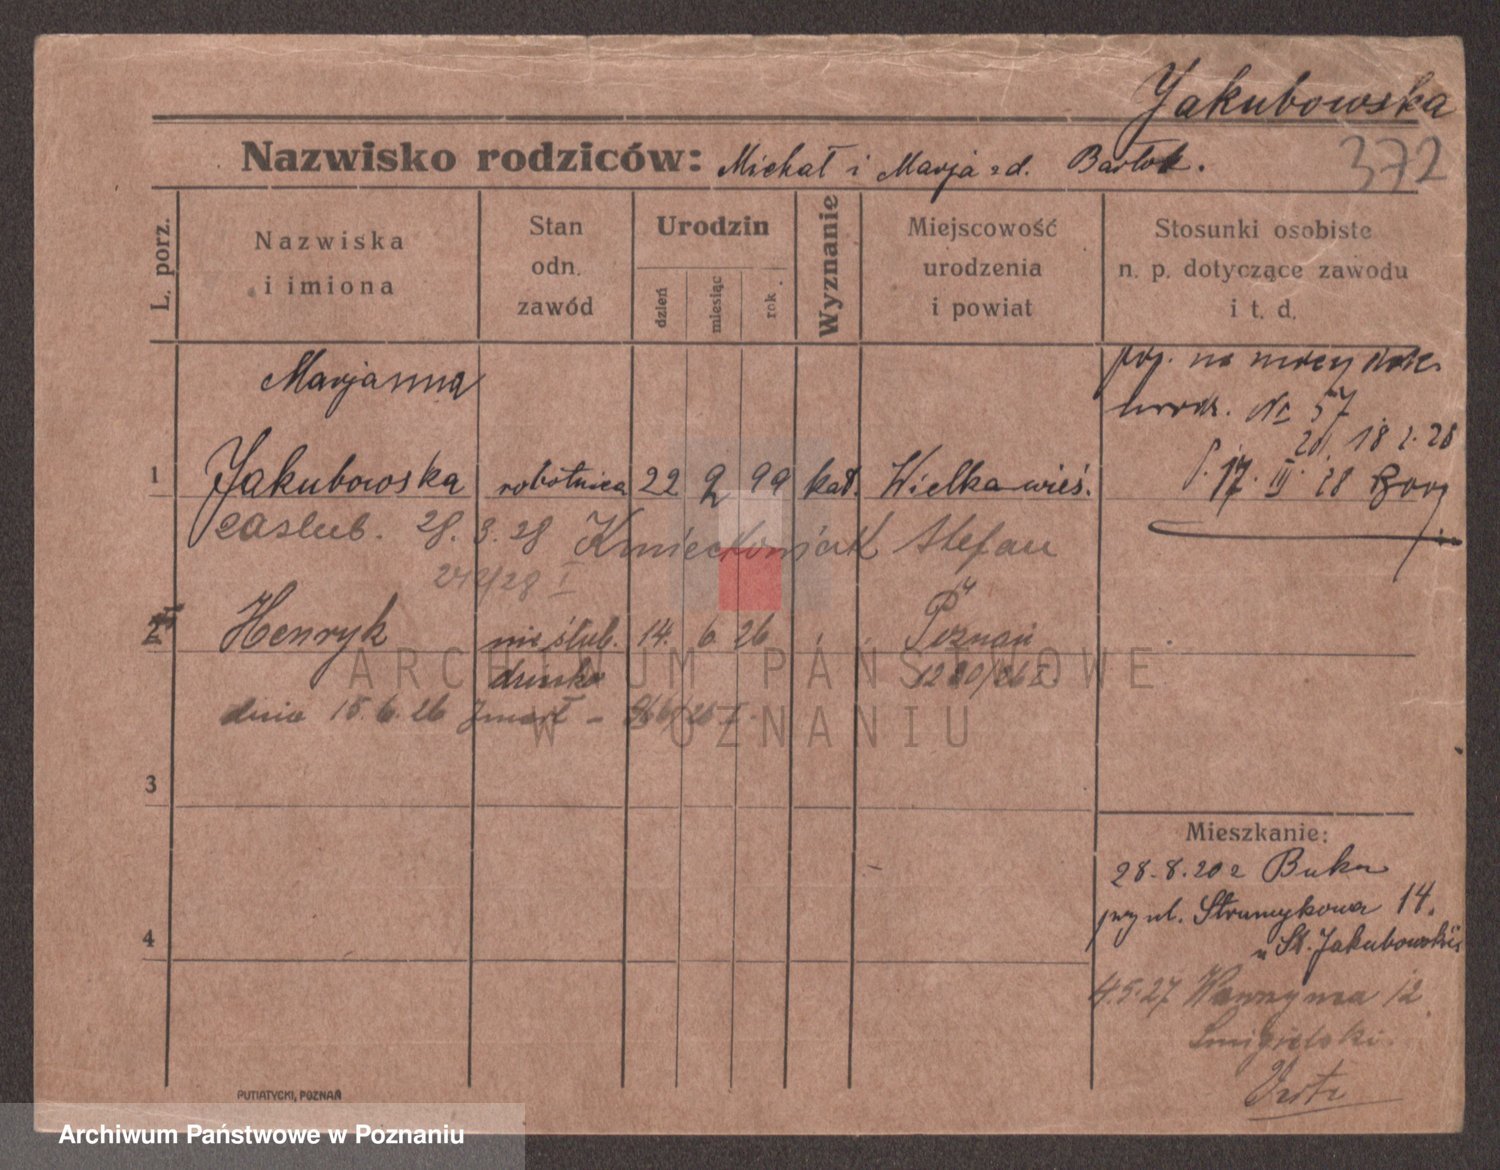 Jakubowska
372
Nazwisko rodziców: Michał i Marja zd. Bartok.
L. porz.
Nazwiska
i imiona
Stan
odn.
zawód
Urodzin
dzień
miesiąc
rok
Wyznanie
Miejscowość
urodzenia
i powiat
Stosunki osobiste
n. p. dotyczące zawodu
i t. d.
Marjanna
na mocy
urodz. Nr 57
18 2. 28
1 Jakubowska robotnica 22 9 99 kat. Wielka wieś.
17. III 28
zaślub. 28. 3. 28 Kmieckowiak Stefan
242/28 I
2 Henryk nieślub. 14. 6. 26 Poznań
dziecko
dnia 15. 6. 26 zmarł –
ARCHIWUM PAŃSTWOWE
W POZNANIU
3
4
Mieszkanie:
28.8.20 z Buku
przy ul. Strumykowa 14.
u St. Jakubowskiej
4.5.27 Wawrzyńca 12
Śmigielski
PUTIATYCKI, POZNAŃ
Archiwum Państwowe w Poznaniu